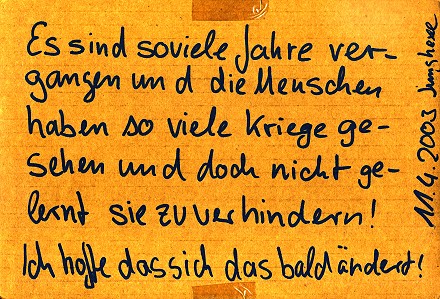 Es sind soviele Jahre ver-
gangen und die Menschen
haben so viele Kriege ge-
sehen und doch nicht ge-
lernt sie zu verhindern!
Ich hoffe das sich das bald ändert!
11.4.2003